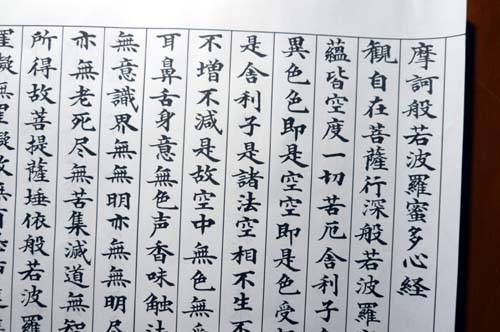 摩訶般若波羅蜜多心経
観自在菩薩行深般若波羅
蘊皆空度一切苦厄舍利子
異色色即是空空即是色受
是舍利子是諸法空相不生不
不増不減是故空中無色無
耳鼻舌身意無色声香味触法
無意識界無無明亦無無明尽
亦無老死尽無苦集滅道無智
所得故菩提薩埵依般若波羅
罣礙無罣礙故無有恐怖